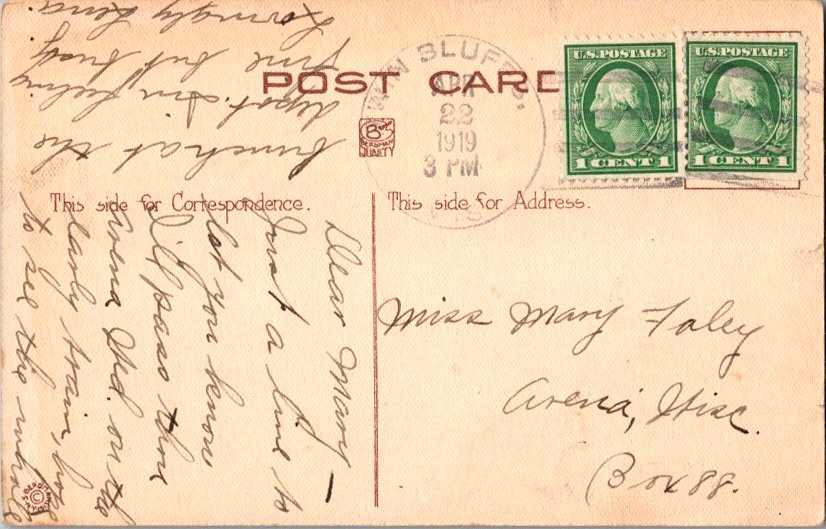 POST CARD
U.S. POSTAGE
1 CENT 1
U.S. POSTAGE
1 CENT 1
BLUFF
APR
22
1919
3 PM
QUALITY
This side for Correspondence.
This side for Address.
Dear Mary –
Just a line to
let you know
I'll pass thru
Arena Wed. on the
early train, hope
to see the whole
bunch at the
depot. Am feeling
fine but busy
Lovingly Lena.
Miss Mary Foley
Arena, Wisc.
Box 88.